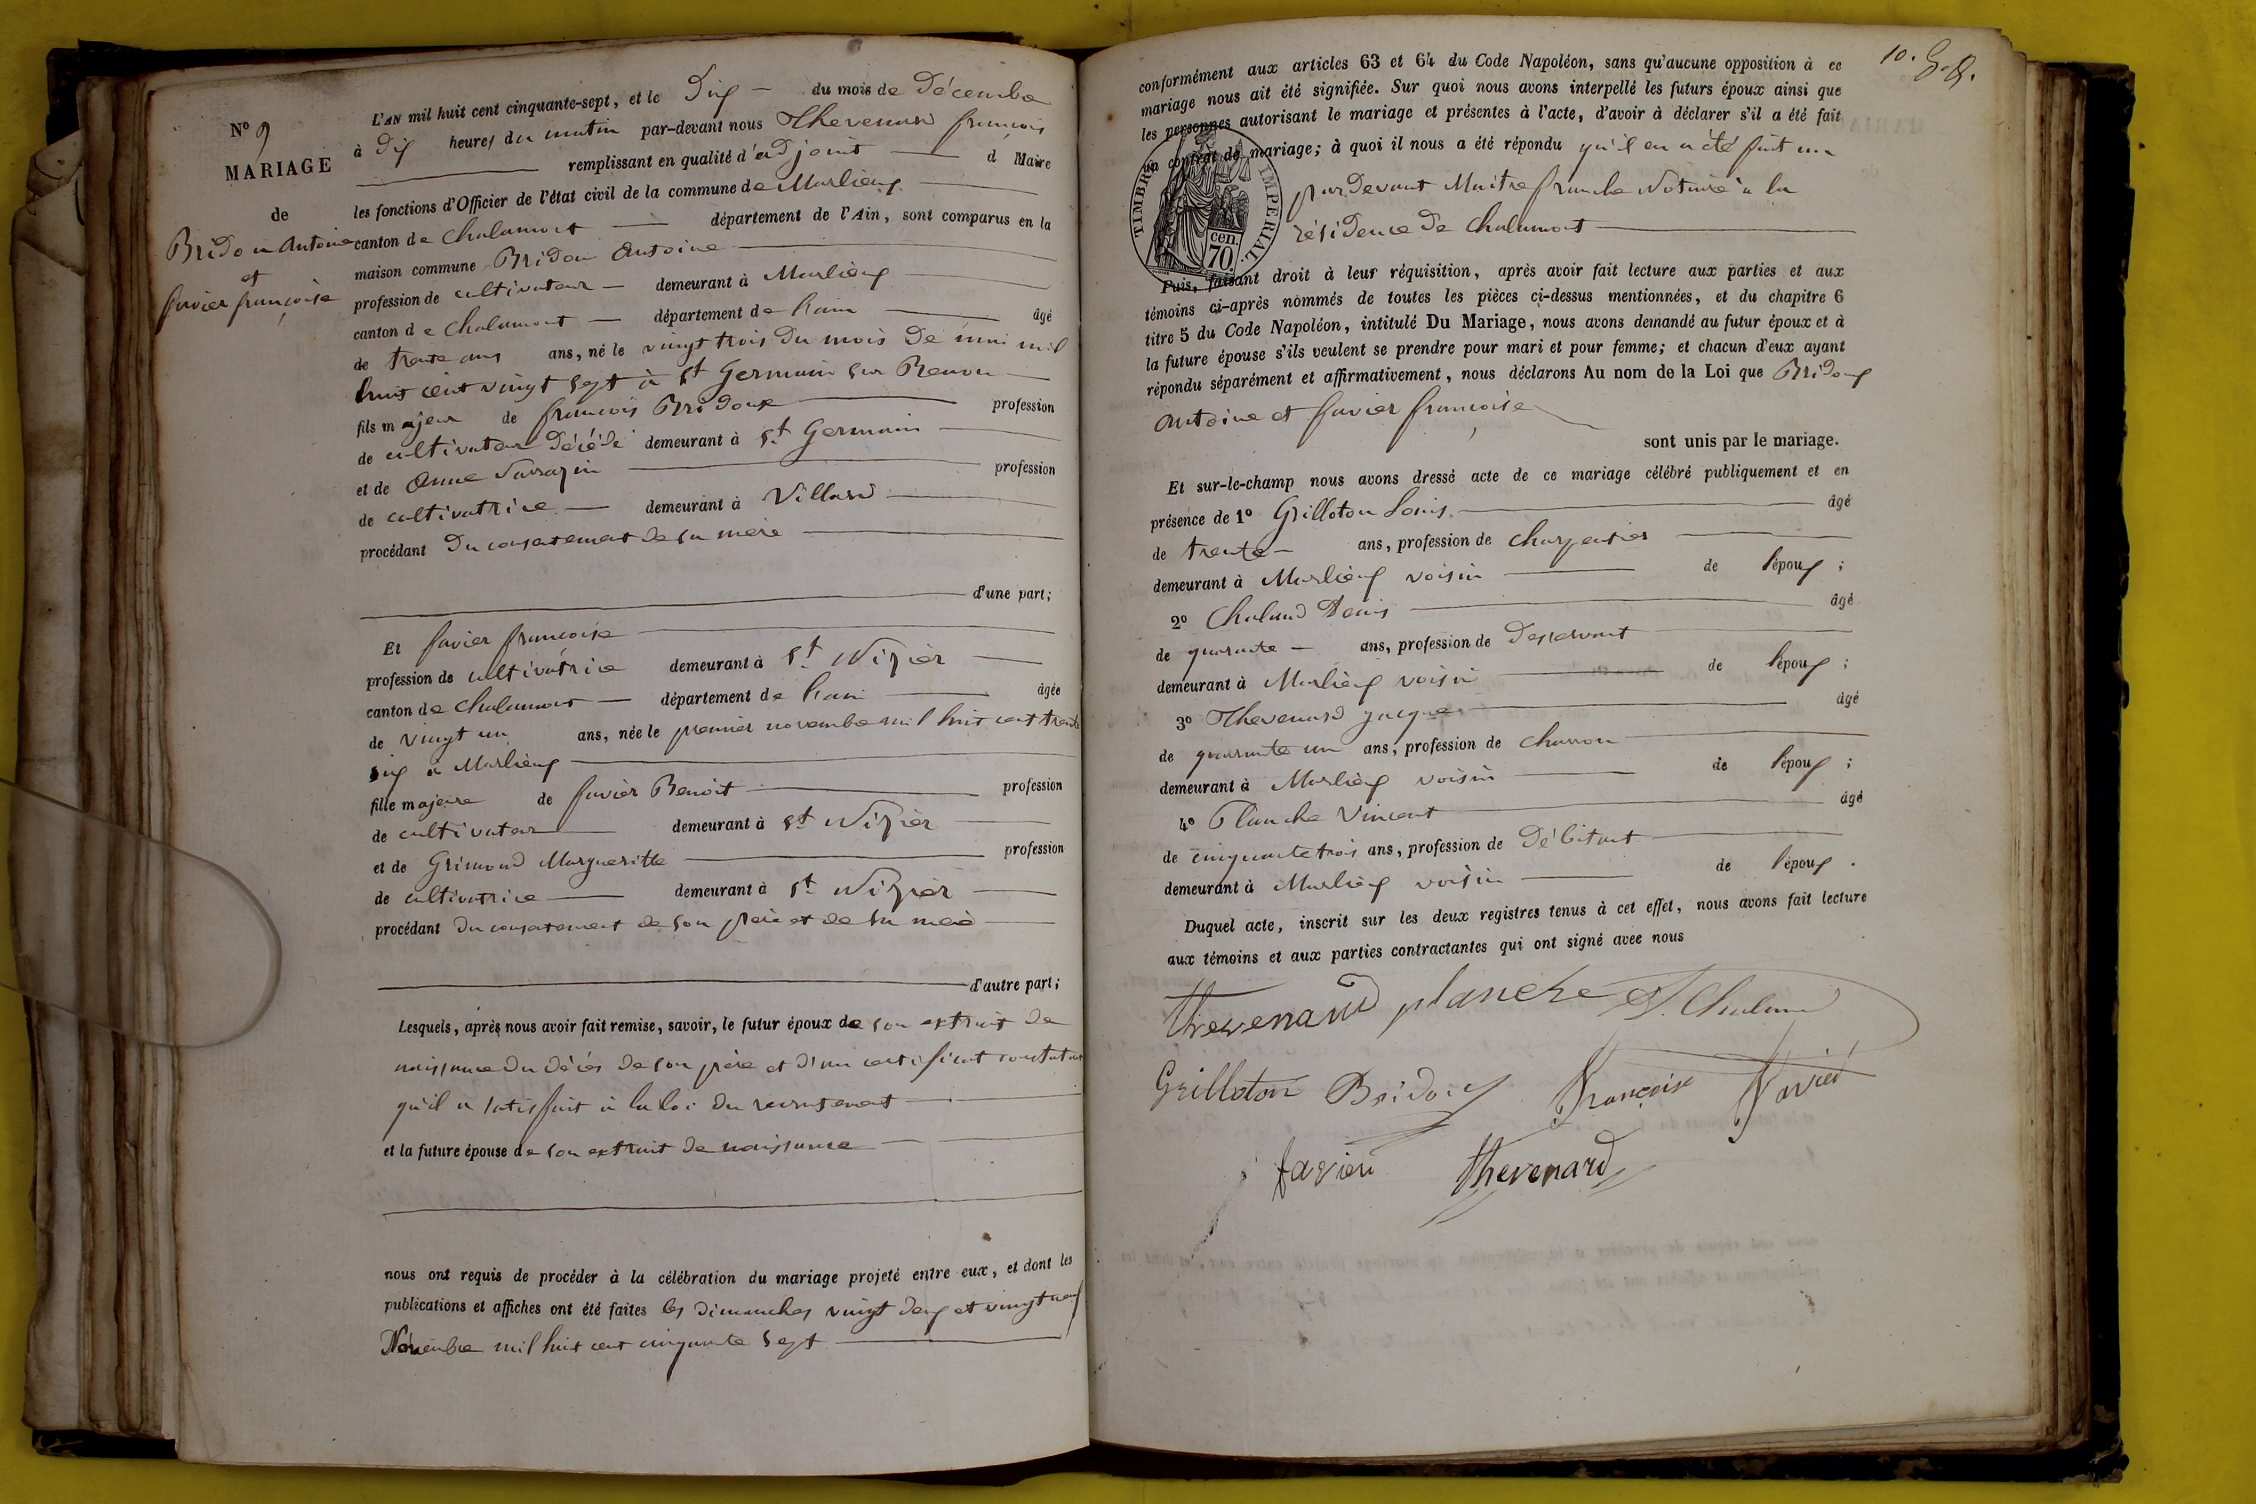 N° 9
MARIAGE
de
Bridon Antoine
et
favier françoise
L'AN mil huit cent cinquante-sept, et le Dix du mois de Décembre
à Dix heures du matin par-devant nous Thevenard françois
remplissant en qualité d'adjoint d Maire
les fonctions d'Officier de l'état civil de la commune de Marlieux
canton de Chalamont département de l'Ain, sont comparus en la
maison commune Bridon Antoine
profession de cultivateur demeurant à Marlieux
canton de Chalamont département de l'ain âgé
de trente ans ans, né le vingt trois du mois de mai mil
huit cent vingt sept à St Germain sur Renon
fils majeur de françois Bridoux profession
de cultivateur décédé demeurant à St Germain
et de Anne Sarrazin profession
de cultivatrice demeurant à Villard
procédant du consatement de sa mère
d'une part;
Et favier francoise
profession de cultivatrice demeurant à St Nizier
canton de Chalamont département de l'ain âgée
de vingt un ans, née le premier novembre mil huit cent trente
six à Marlieux
fille majeure de favier Benoit profession
de cultivateur demeurant à St Nizier
et de Grimond Marguerite profession
de cultivatrice demeurant à St Nizier
procédant du consatement de son père et de sa mère
d'autre part;
Lesquels, après nous avoir fait remise, savoir, le futur époux de son extrait de
naissance du décés de son père et d'un certificat constatant
qu'il a satisfait à la loi du recrutement
et la future épouse de son extrait de naissance
nous ont requis de procéder à la célébration du mariage projeté entre eux, et dont les
publications et affiches ont été faites les dimanches vingt deux et vingt neuf
Novembre mil huit cent cinquante sept
10.
conformément aux articles 63 et 64 du Code Napoléon, sans qu'aucune opposition à ce
mariage nous ait été signifiée. Sur quoi nous avons interpellé les futurs époux ainsi que
les personnes autorisant le mariage et présentes à l'acte, d'avoir à déclarer s'il a été fait
un contrat de mariage; à quoi il nous a été répondu qu'il en a été fait un
pardevant Maitre franche Notaire à la
résidence de Chalamont
TIMBRE IMPERIAL.
70 cen.
Puis, faisant droit à leur réquisition, après avoir fait lecture aux parties et aux
témoins ci-après nommés de toutes les pièces ci-dessus mentionnées, et du chapitre 6
titre 5 du Code Napoléon, intitulé Du Mariage, nous avons demandé au futur époux et à
la future épouse s'ils veulent se prendre pour mari et pour femme; et chacun d'eux ayant
répondu séparément et affirmativement, nous déclarons Au nom de la Loi que Bridoux
Antoine et favier françoise
sont unis par le mariage.
Et sur-le-champ nous avons dressé acte de ce mariage célébré publiquement et en
présence de 1° Grilloton Louis âgé
de trente ans, profession de charpentier
demeurant à Marlieux voisin de l'époux;
2° Chaland Denis âgé
de quarante ans, profession de Desservant
demeurant à Marlieux voisin de l'époux;
3° Thevenard Jacques âgé
de quarante un ans, profession de charron
demeurant à Marlieux voisin de l'époux;
4° Planche Vincent âgé
de cinquante trois ans, profession de Débitant
demeurant à Marlieux voisin de l'époux.
Duquel acte, inscrit sur les deux registres tenus à cet effet, nous avons fait lecture
aux témoins et aux parties contractantes qui ont signé avec nous
thevenard planche Chaland
Grilloton Bridoux Françoise Favier
favier thevenard